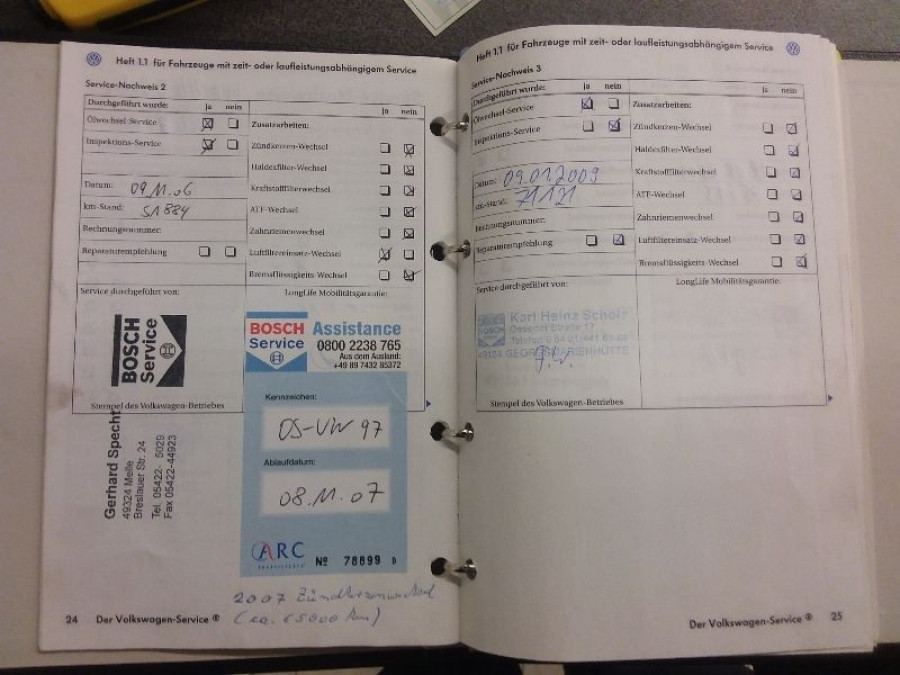 Heft 1.1 für Fahrzeuge mit zeit- oder laufleistungsabhängigem Service
Service-Nachweis 2
Durchgeführt wurde: ja nein
Ölwechsel-Service
Inspektions-Service
Datum: 09.11.06
km-Stand: 51884
Rechnungsnummer:
Reparaturempfehlung
ja nein
Zusatzarbeiten:
Zündkerzen-Wechsel
Haldexfilter-Wechsel
Kraftstofffilterwechsel
ATF-Wechsel
Zahnriemenwechsel
Luftfiltereinsatz-Wechsel
Bremsflüssigkeits-Wechsel
Service durchgeführt von:
BOSCH
Service
Stempel des Volkswagen-Betriebes
Gerhard Specht
49324 Melle
Breslauer Str. 24
Tel. 05422- 5029
Fax 05422-44923
LongLife Mobilitätsgarantie:
BOSCH
Service
Assistance
0800 2238 765
Aus dem Ausland:
+49 89 7432 85372
Kennzeichen:
OS-VW 97
Ablaufdatum:
08.11.07
ARC
Nº 78899 D
2007 Zündkerzenwechsel
24 Der Volkswagen-Service ®
Heft 1.1 für Fahrzeuge mit zeit- oder laufleistungsabhängigem Service
Service-Nachweis 3
Durchgeführt wurde: ja nein
Ölwechsel-Service
Inspektions-Service
Datum: 09.01.2009
km-Stand: 71121
Rechnungsnummer:
Reparaturempfehlung
ja nein
Zusatzarbeiten:
Zündkerzen-Wechsel
Haldexfilter-Wechsel
Kraftstofffilterwechsel
ATF-Wechsel
Zahnriemenwechsel
Luftfiltereinsatz-Wechsel
Bremsflüssigkeits-Wechsel
Service durchgeführt von:
Karl Heinz Scholz
49124 GEORGSMARIENHÜTTE
Stempel des Volkswagen-Betriebes
LongLife Mobilitätsgarantie:
Der Volkswagen-Service ® 25